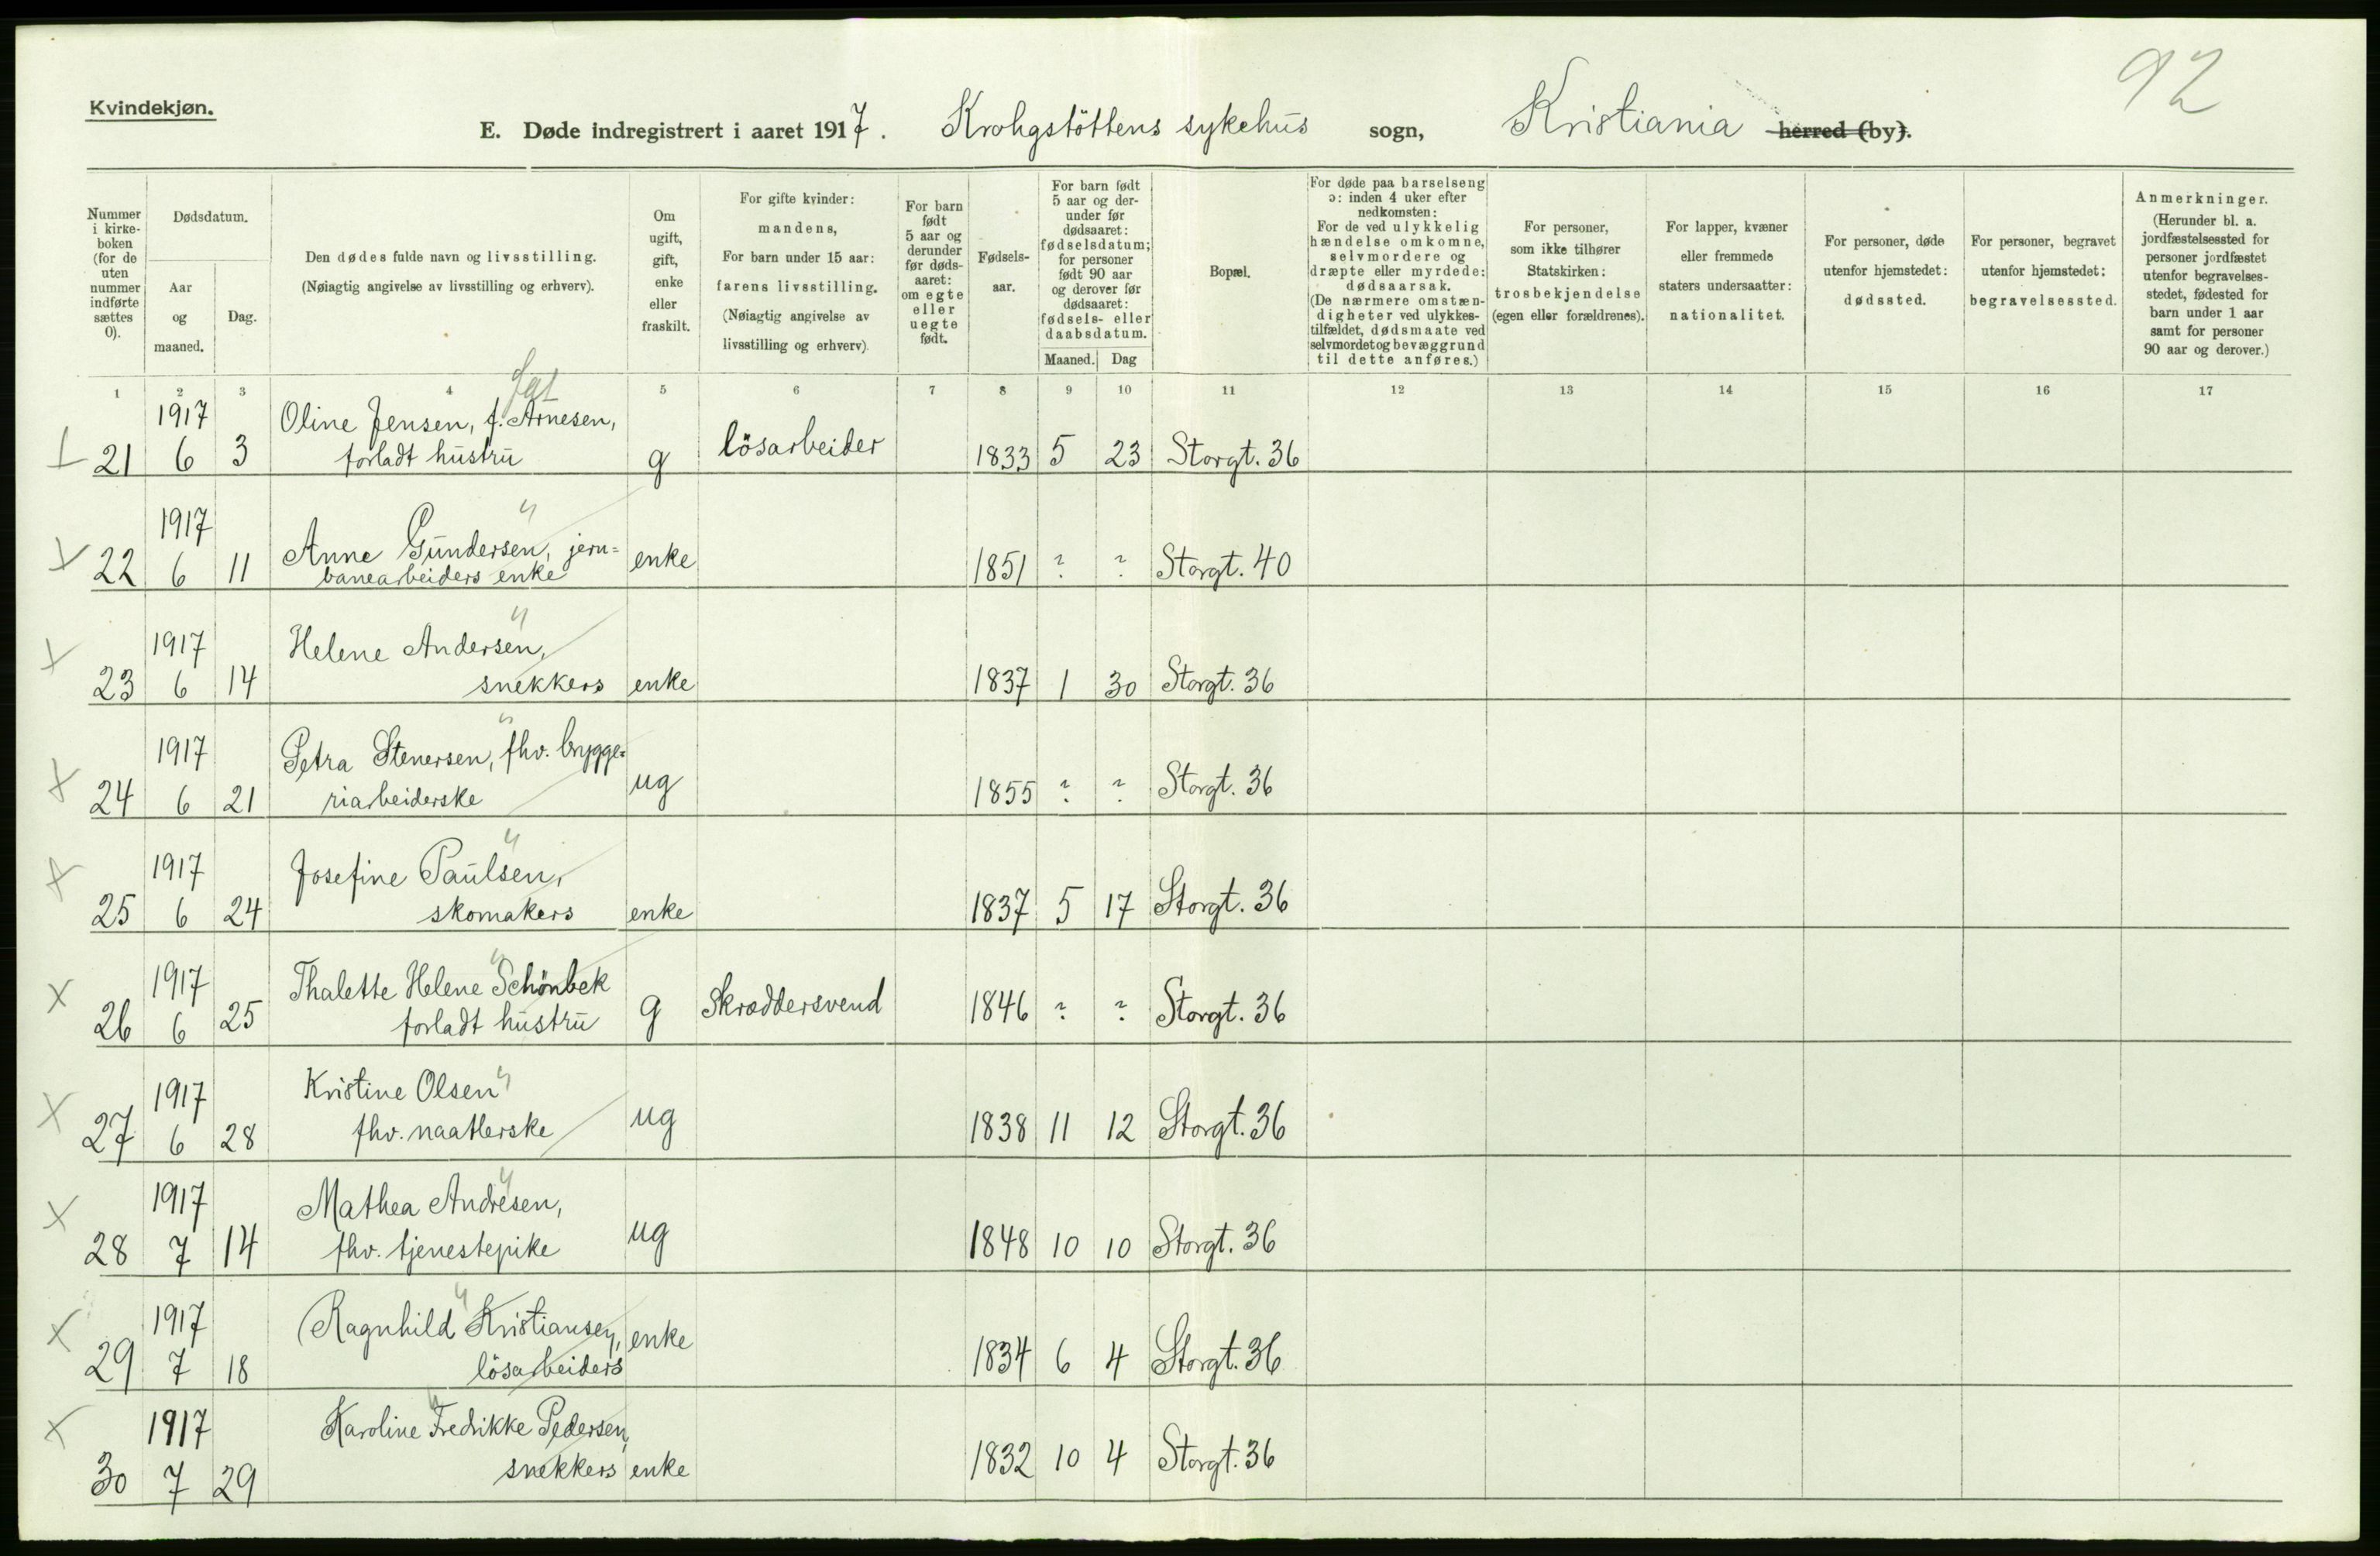 92
Kvindekjøn.
E. Døde indregistrert i aaret 1917. Krohgstöttens sykehus sogn, Kristiania herred (by).
Nummer i kirkeboken (for de uten nummer indførte sættes 0).
Dødsdatum.
Aar og maaned.
Dag.
Den dødes fulde navn og livsstilling.
(Nøiagtig angivelse av livsstilling og erhverv).
Om ugift, gift, enke eller fraskilt.
For gifte kvinder: mandens,
For barn under 15 aar: farens livsstilling.
(Nøiagtig angivelse av livsstilling og erhverv)
For barn født 5 aar og derunder før dødsaaret: om egte eller uegte født.
Fødselsaar.
For barn født 5 aar og derunder før dødsaaret: fødselsdatum; for personer født 90 aar og derover før dødsaaret: fødsels- eller daabsdatum.
Maaned. Dag
Bopæl.
For døde paa barselseng ɔ: inden 4 uker efter nedkomsten:
For de ved ulykkelig hændelse omkomne, selvmordere og dræpte eller myrdede: dødsaarsak.
(De nærmere omstændigheter ved ulykkestilfældet, dødsmaate ved selvmordet og bevæggrund til dette anføres.)
For personer, som ikke tilhører Statskirken: trosbekjendelse (egen eller forældrenes).
For lapper, kvæner eller fremmede staters undersaatter: nationalitet.
For personer, døde utenfor hjemstedet: dødssted.
For personer, begravet utenfor hjemstedet: begravelsessted.
Anmerkninger.
(Herunder bl. a. jordfæstelsessted for personer jordfæstet utenfor begravelsesstedet, fødested for barn under 1 aar samt for personer 90 aar og derover.)
1 2 3 4 5 6 7 8 9 10 11 12 13 14 15 16 17
1917 Oline Jensen, f. Arnesen,
21 6 3 forladt hustru g lösarbeider 1833 5 23 Storgt. 36
1917 Anne Gundersen, jern=
22 6 11 banearbeiders enke enke 1851 ? ? Storgt. 40
1917 Helene Andersen,
23 6 14 snekkers enke 1837 1 30 Storgt. 36
1917 Petra Stenersen, fhv. brygge=
24 6 21 riarbeiderske ug 1855 ? ? Storgt. 36
1917 Josefine Paulsen,
25 6 24 skomakers enke 1837 5 17 Storgt. 36
1917 Thalette Helene Schönbek
26 6 25 forladt hustru g Skræddersvend 1846 ? ? Storgt. 36
1917 Kristine Olsen
27 6 28 fhv. naatlerske ug 1838 11 12 Storgt. 36
1917 Mathea Andresen,
28 7 14 fhv. tjenestepike ug 1848 10 10 Storgt. 36
1917 Ragnhild Kristiansen,
29 7 18 lösarbeiders enke 1834 6 4 Storgt. 36
1917 Karoline Fredrikke Pedersen,
30 7 29 snekkers enke 1832 10 4 Storgt. 36